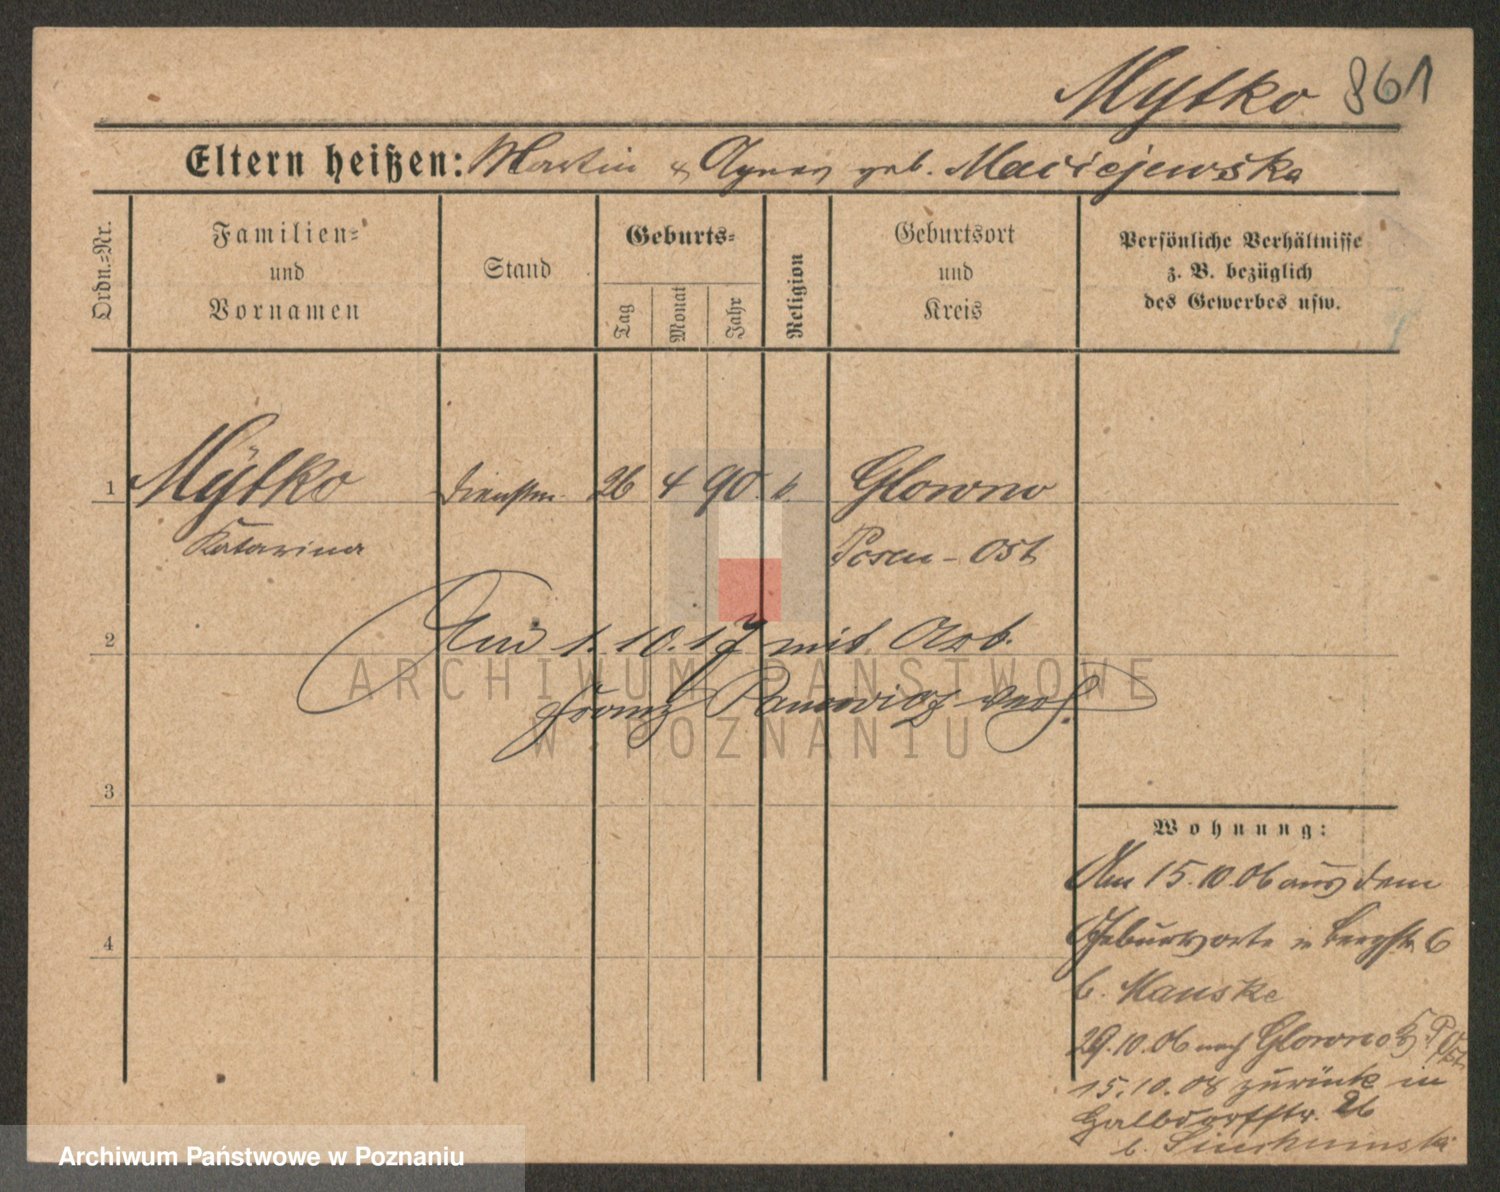 Mytko 861
Eltern heißen: Martin & Agnes geb. Maciejewska
Ordn.=Nr.
Familien=
und
Vornamen
Stand
Geburts=
Tag
Monat
Jahr
Religion
Geburtsort
und
Kreis
Persönliche Verhältnisse
z. B. bezüglich
des Gewerbes usw.
1 Mÿtko Dienstm. 26 4 90. k. Glowno
Katarina Posen - Ost
2 1. 10. 17 mit Arb.
Franz Panowicz verh.
3
4
Wohnung:
Am 15. 10. 06 aus dem
Geburtsorte in Bergstr. 6
b. Manske
29. 10. 06 nach Glowno
15. 10. 08 zurück in
26
b.
ARCHIWUM PAŃSTWOWE
W POZNANIU
Archiwum Państwowe w Poznaniu